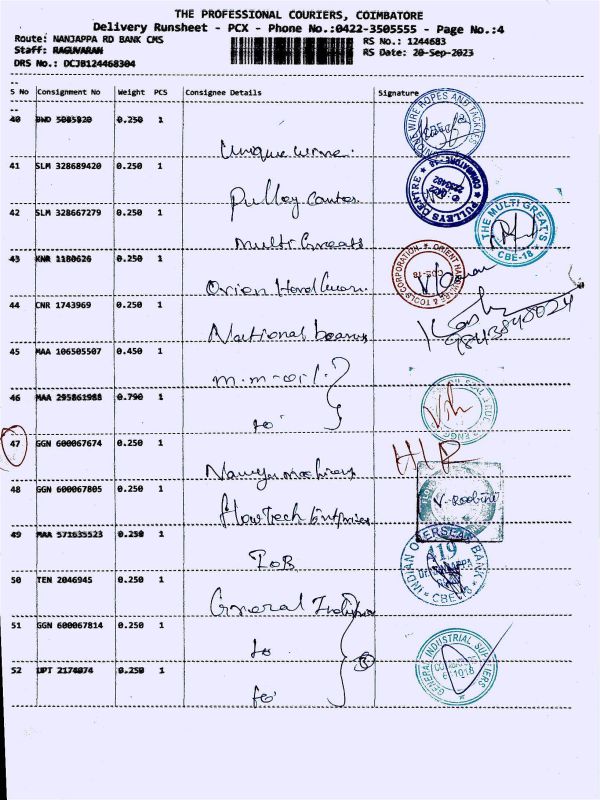 THE PROFESSIONAL COURIERS, COIMBATORE
Delivery Runsheet - PCX - Phone No.:0422-3505555 - Page No.:4
Route: NANJAPPA RD BANK CMS
RS No.: 1244683
Staff: RAGUVARAN
RS Date: 20-Sep-2023
DRS No.: DCJB124468304
S No Consignment No Weight PCS Consignee Details Signature
40 DWD 5085020 0.250 1
Unique wire.
41 SLM 328689420 0.250 1
Pulley Center
42 SLM 328667279 0.250 1
Multi Greats
43 KNR 1180626 0.250 1
Orien Hardware
44 CNR 1743969 0.250 1
National bearing
9843840024
45 MAA 106505507 0.450 1
m.m-oil.
46 MAA 295861988 0.790 1
to
47 GGN 600067674 0.250 1
HLP
48 GGN 600067805 0.250 1
Flowtech Enterprises
V. Roobini
49 MAA 571635523 0.250 1
IOB
INDIAN OVERSEAS BANK
419
CBE-18
50 TEN 2046945 0.250 1
General Industrial
51 GGN 600067814 0.250 1
to
52 UPT 2174074 0.250 1
to
3
GENERAL INDUSTRIAL SUPPLIERS
WIRE ROPES AND TACKLES
PULLEYS CENTRE
THE MULTI GREAT'S
CBE-18
ORIENT HARDWARE & TOOLS CORPORATION
CBE-18